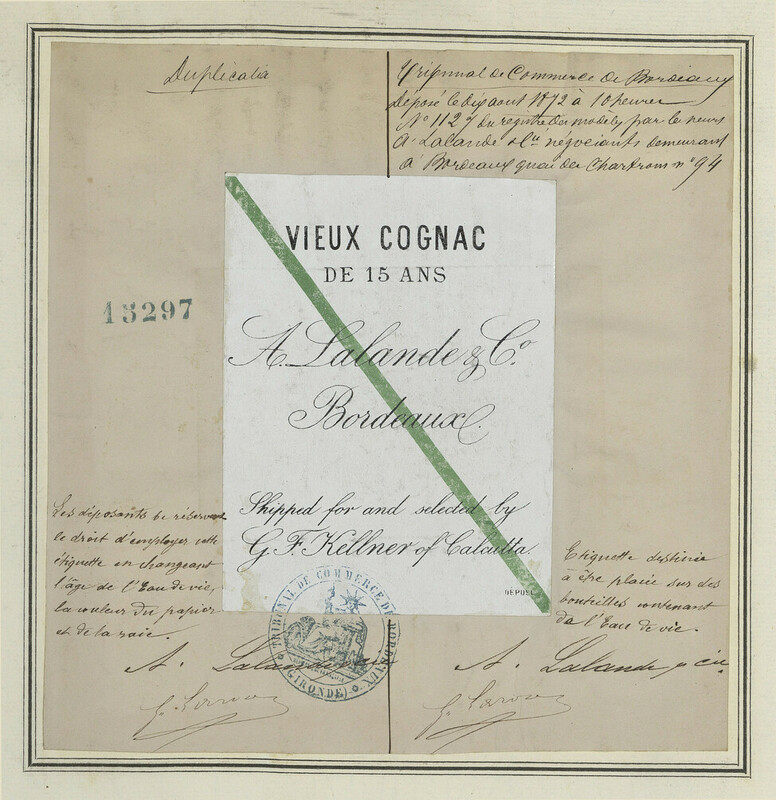 Duplicata
Tribunal de Commerce de Bordeaux
Déposé le dix aout 1872 à 10 heures
N° 1127 du registre des modèles par les sieurs
A. Lalande & Cie négociants demeurant
à Bordeaux quai des Chartrons n° 94
VIEUX COGNAC
DE 15 ANS
15297
A. Lalande & Co.
Bordeaux
Shipped for and selected by
G. F. Kellner of Calcutta.
DÉPOSÉ
Les déposants se réservent
le droit d'employer cette
étiquette en changeant
l'âge de l'Eau de vie,
la couleur du papier
et de la raie.
Etiquette destinée
à être placée sur des
bouteilles contenant
de l'Eau de vie.
TRIBUNAL DE COMMERCE DE BORDEAUX
(GIRONDE)
A. Lalande & cie
A. Lalande & cie